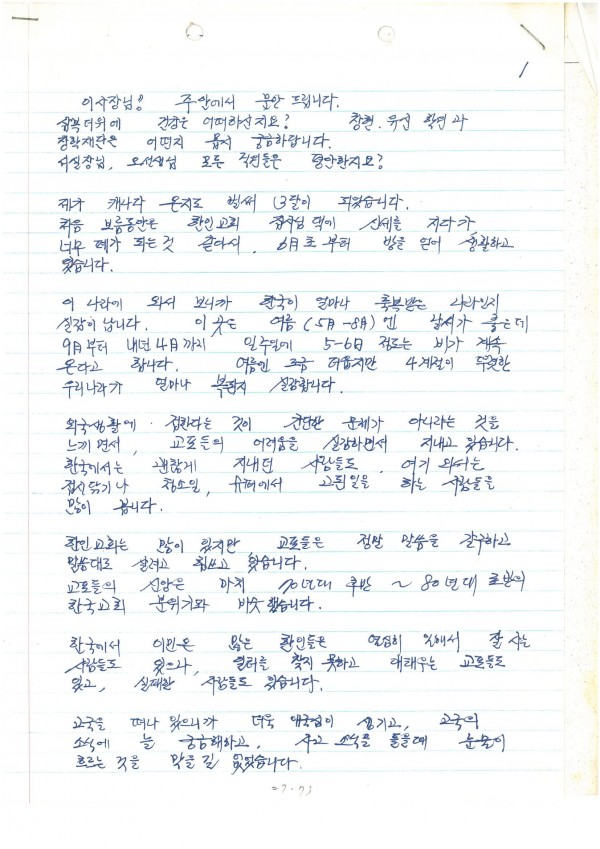 1
이사장님!! 주안에서 문안 드립니다.
삼복더위에 건강은 어떠하신지요? 창현. 유신 확연과
장학재단은 어떤지 몹시 궁금하답니다.
서실장님, 오선생님 모든 직원들은 평안한지요?
제가 캐나다 온지도 벌써 3달이 되었습니다.
처음 보름동안은 한인교회 집사님 댁에 신세를 지다가
너무 폐가 되는것 같다서. 6月초부터 방을 얻어 생활하고
있습니다.
이 나라에 와서 보니까 한국이 얼마나 축복받은 나라인지
실감이 납니다. 이곳은 여름(5月-8月)엔 날씨가 좋은데
9月부터 내년4月까지 일주일에 5-6日 정도는 비가 계속
온다고 합니다. 여름엔 조금 더웁지만 4계절이 뚜렷한
우리나라가 얼마나 복된지 실감합니다.
외국생활에 접한다는 것이 간단한 문제가 아니라는 것을
느끼면서, 교포들의 어려움을 실감하면서 지내고 있습니다.
한국에서는 괜찮게 지내던 사람들도. 여기 와서는
접시닦기나 청소일, 슈퍼에서 고된일을 하는 사람들을
많이 봅니다.
한인교회는 많이 있지만 교포들은 정말 말씀을 갈구하고
말씀대로 살려고 힘쓰고 있습니다.
교포들의 신앙은 마치 70년대 후반 ~ 80년대 초반의
한국교회 분위기와 비슷했습니다.
한국에서 이민온 많은 한인들은 열심히 일해서 잘 사는
사람들도 있으나, 일터를 찾지 못하고 애태우는 교포들도
있고, 실패한 사람들도 있습니다.
고국을 떠나 있으니까 더욱 애국심이 생기고, 고국의
소식에 늘 궁금해하고, 사고 소식을 들을때 눈물이
흐르는 것을 막을길 없었습니다.